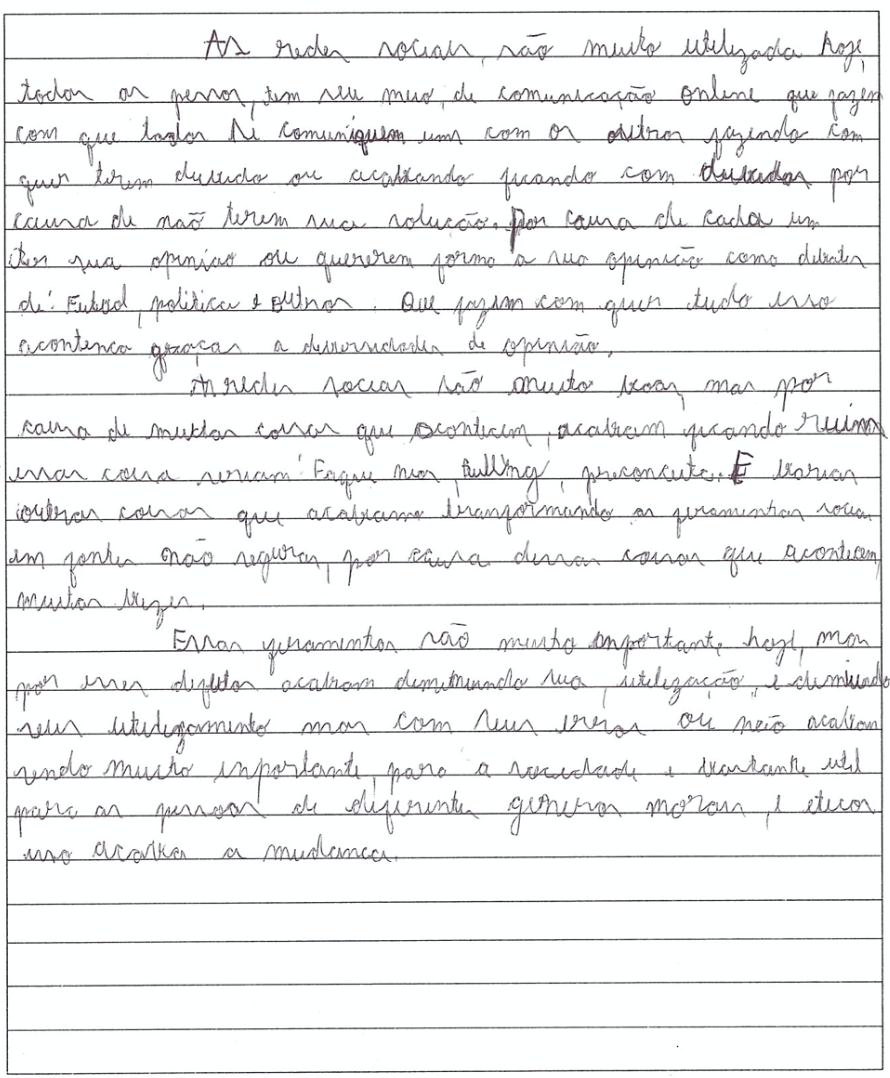 As redes sociais, são muito utilizada hoje,
todos as pessoas, tem seu meio, de comunicação online que fazem
com que todos se comuniquem uns com os outros fazendo com
que terem duvida ou acabando ficando com duvidas por
causa de não terem sua solução. Por causa de cada um
ter sua opiniao ou quererem forma a sua opinição como debates
de: Futbol, politica e outros. Que fazem com que tudo isso
aconteca graças a diversidades de opinião.
As redes sociais são muito boas, mas por
causa de muitas coisas que acontecem, acabam ficando ruins
essas coisa seriam: Faque nios, bullyng, preconceito. E varias
outras coisas que acabamo transformando as feramentas sociais
em fontes não seguras, por causa dessas coisas que acontecem,
muitas vezes.
Essas feramentas são muito importante hoje, mas
por esses defeitos acabam deminuindo sua, utilização, e
seus mas com seus erros ou não acabam
sendo muito importante, para a sociedade e bastante util
para as pessoas de diferentes generos morais, e eticos
isso acaba a mudanca.